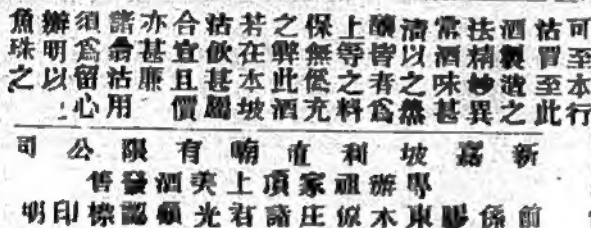 可至本行
沽買至此
酒製造之
法精妙異
常酒味甚
清以之熟
釀皆者為
上等之料
保無低充
之弊此酒
若在本坡
沽飲甚屬
合宜且價
亦甚廉
諸翁沽用
須為留心
辦明以
魚珠之
新嘉坡利直喃有限公司
專辦祖家頂上美酒發售
前係膠東木俬庄諸君光顧認標印明